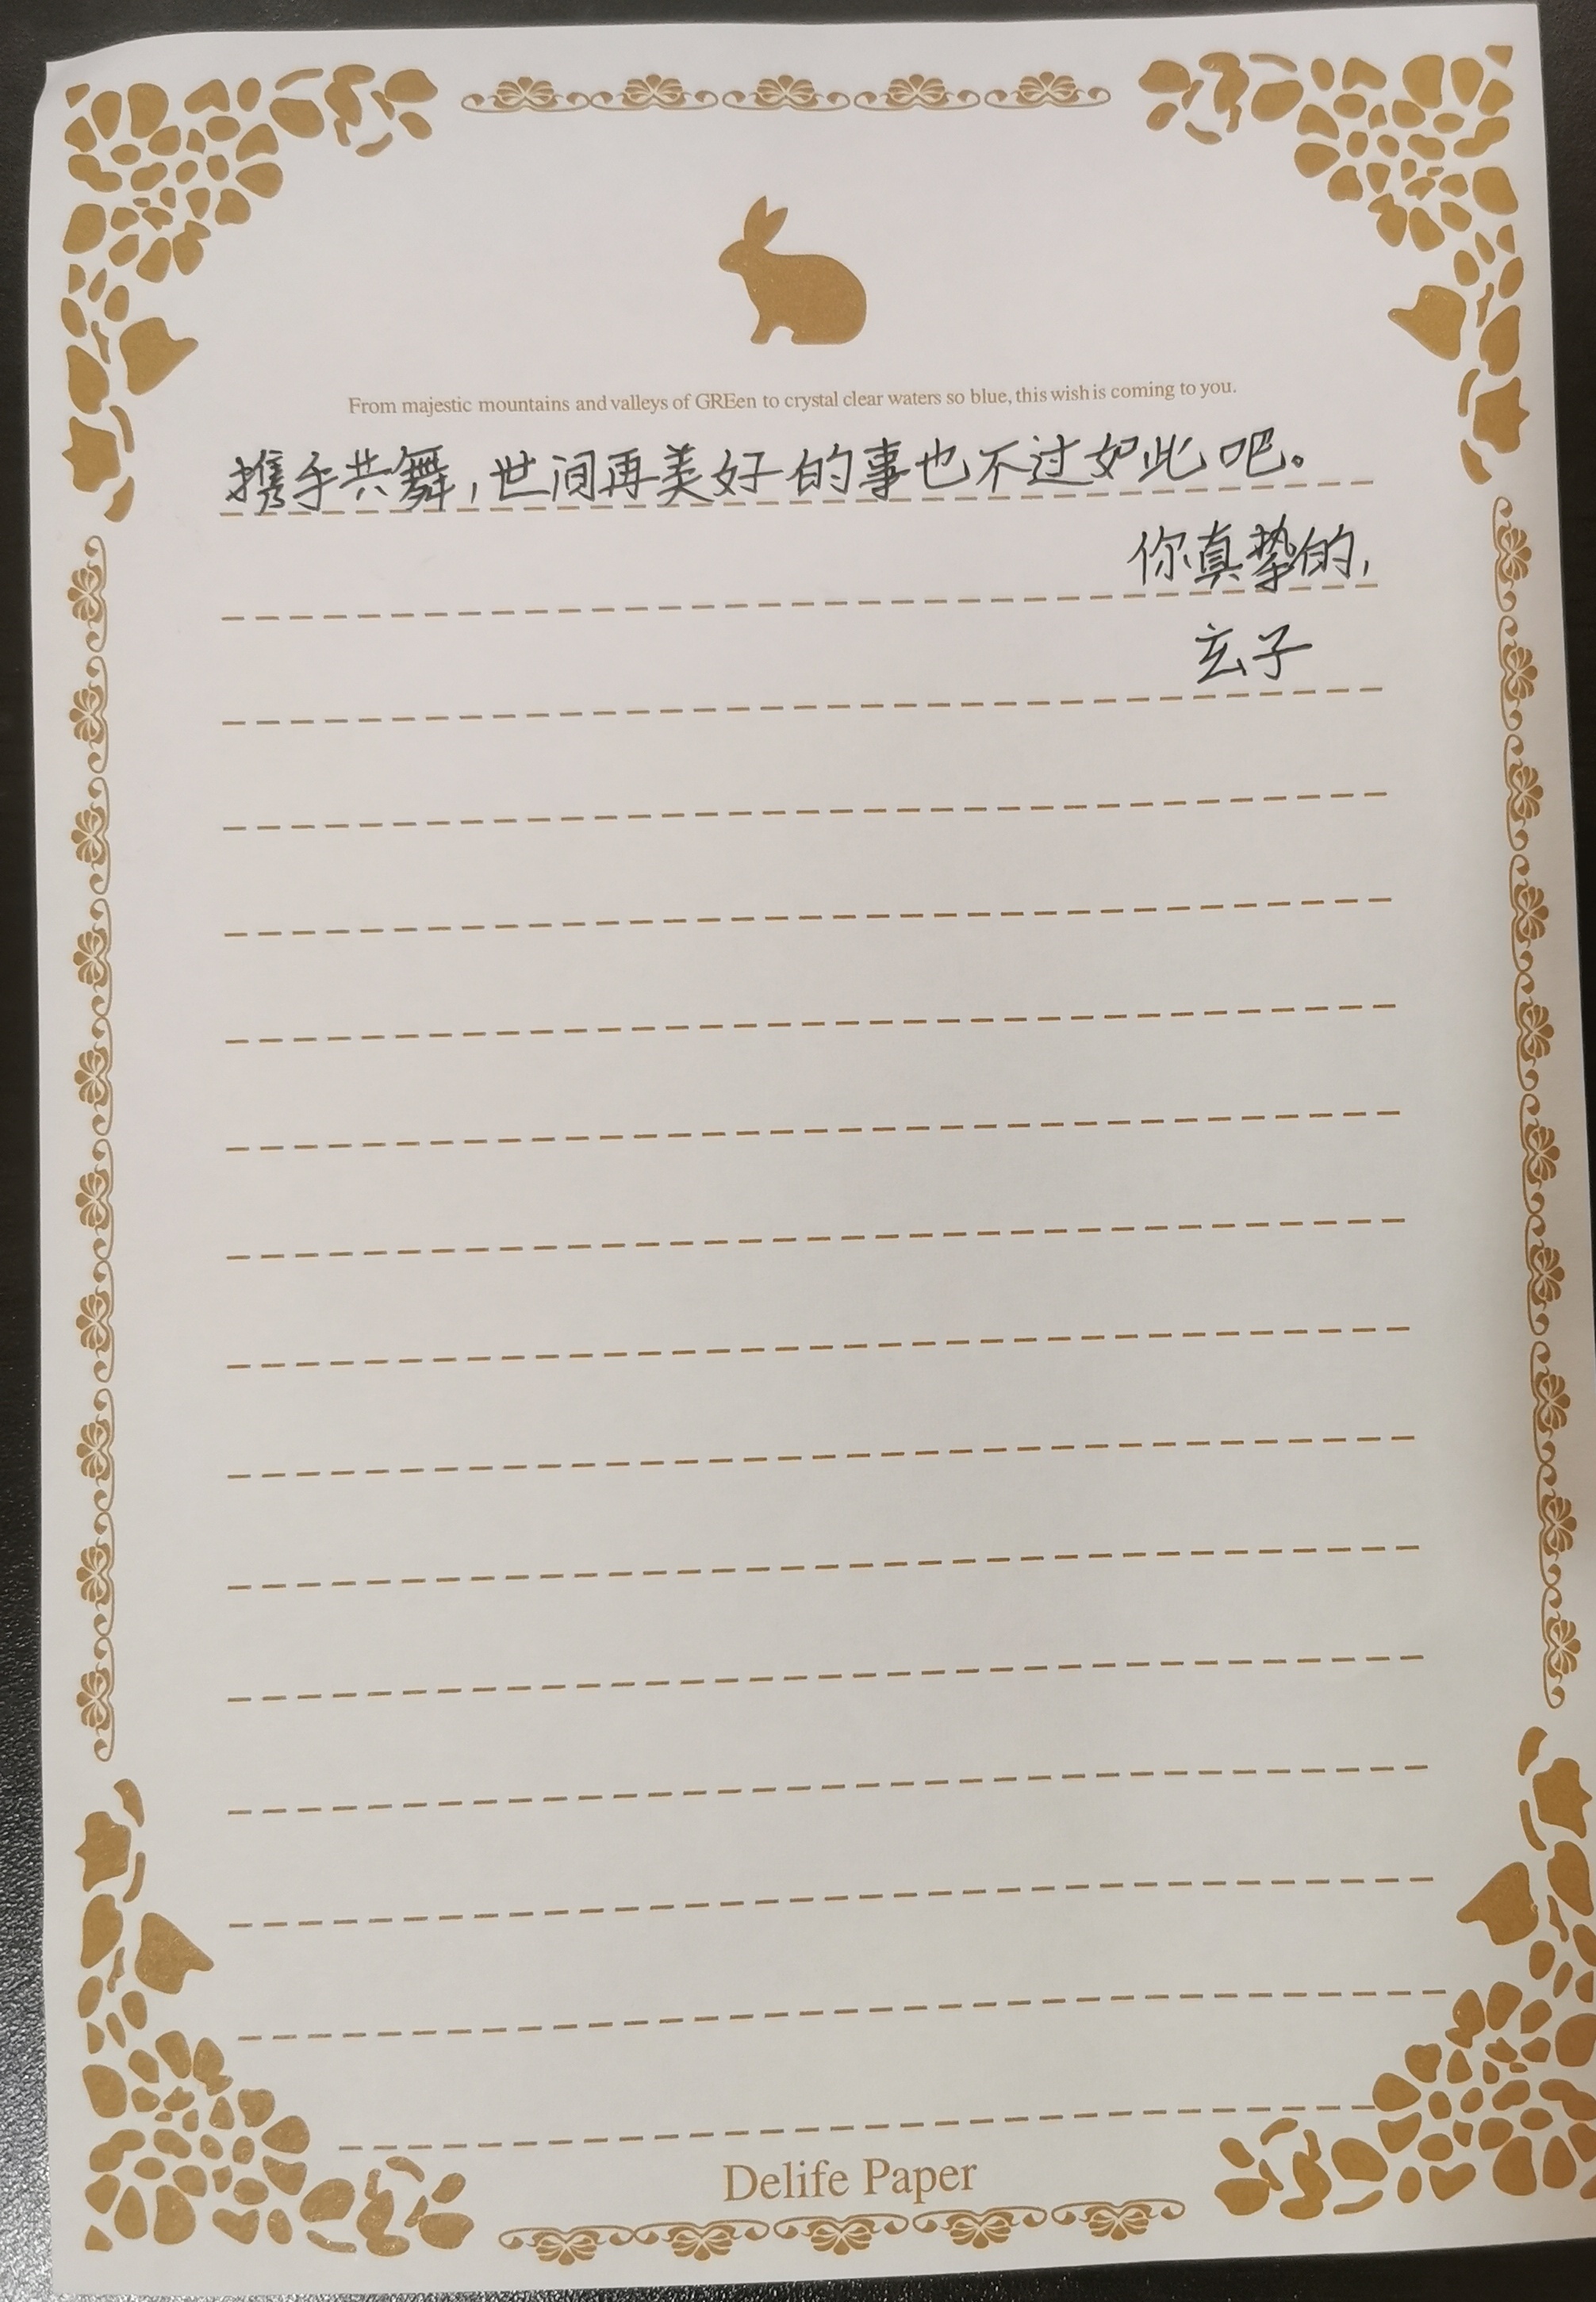 From majestic mountains and valleys of GREen to crystal clear waters so blue, this wish is coming to you.
携手共舞,世间再美好的事也不过如此吧。
你真挚的,
玄子
Delife Paper